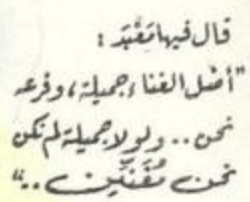 قال فيها مَعْبَد :
"أصْل الغناء جميلة ، وفرعه
نحن .. ولولا جميلة لم نكن
نحن مُغَنِّين .."